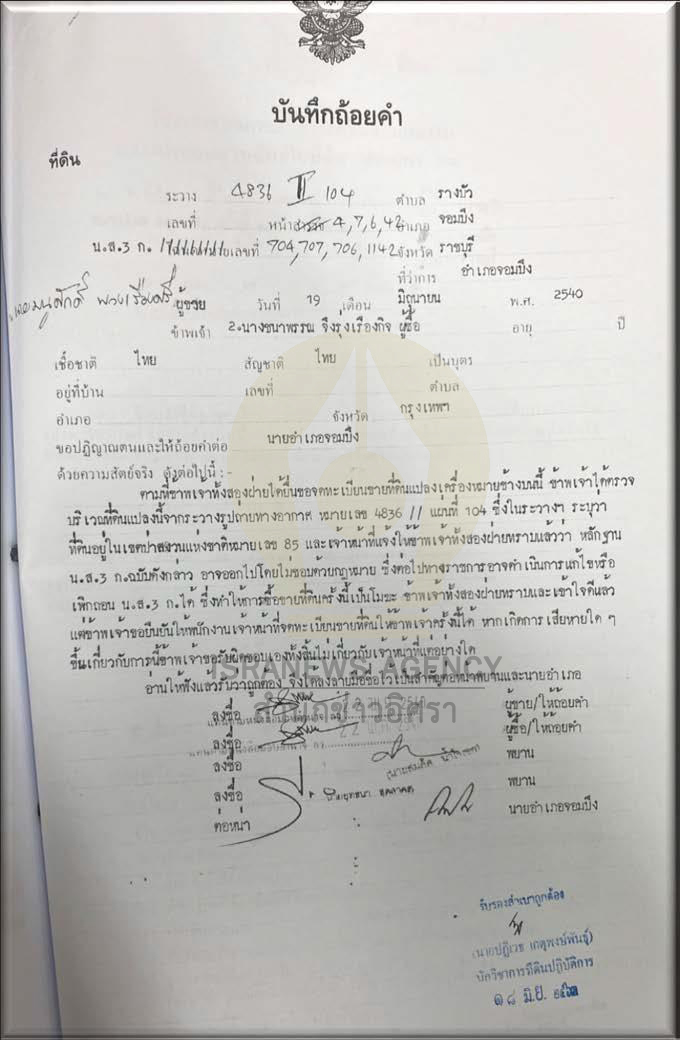 บันทึกถ้อยคำ
ที่ดิน
ระวาง 4836 II 104 ตำบล รางบัว
เลขที่ หน้าสำรวจ 4,7,6,42 อำเภอ จอมบึง
น.ส.3 ก. เลขที่ 704,707,706,1142 จังหวัด ราชบุรี
ที่ว่าการ อำเภอจอมบึง
ผู้ขาย วันที่ 19 เดือน มิถุนายน พ.ศ. 2540
ข้าพเจ้า 2.นางชนาพรรณ จึงรุ่งเรืองกิจ ผู้ซื้อ อายุ ปี
เชื้อชาติ ไทย สัญชาติ ไทย เป็นบุตร
อยู่ที่บ้าน เลขที่ ตำบล
อำเภอ จังหวัด กรุงเทพฯ
ขอปฏิญาณตนและให้ถ้อยคำต่อ นายอำเภอจอมบึง
ด้วยความสัตย์จริง ดังต่อไปนี้ :-
ตามที่ข้าพเจ้าทั้งสองฝ่ายได้ยื่นขอจดทะเบียนขายที่ดินแปลงเครื่องหมายข้างบนนี้ ข้าพเจ้าได้ตรวจ
บริเวณที่ดินแปลงนี้จากระวางรูปถ่ายทางอากาศ หมายเลข 4836 // แผ่นที่ 104 ซึ่งในระวางฯ ระบุว่า
ที่ดินอยู่ในเขตป่าสงวนแห่งชาติหมายเลข 85 และเจ้าหน้าที่แจ้งให้ข้าพเจ้าทั้งสองฝ่ายทราบแล้วว่า หลักฐาน
น.ส.3 ก.ฉบับดังกล่าว อาจออกไปโดยไม่ชอบด้วยกฎหมาย ซึ่งต่อไปทางราชการอาจดำเนินการแก้ไขหรือ
เพิกถอน น.ส.3 ก.ได้ ซึ่งทำให้การซื้อขายที่ดินครั้งนี้เป็นโมฆะ ข้าพเจ้าทั้งสองฝ่ายทราบและเข้าใจดีแล้ว
แต่ข้าพเจ้าขอยืนยันให้พนักงานเจ้าหน้าที่จดทะเบียนขายที่ดินให้ข้าพเจ้าครั้งนี้ได้ หากเกิดการเสียหายใด ๆ
ขึ้นเกี่ยวกับการนี้ข้าพเจ้าขอรับผิดชอบเองทั้งสิ้นไม่เกี่ยวกับเจ้าหน้าที่แต่อย่างใด
ISRANEWS AGENCY
อ่านให้ฟังแล้วรับว่าถูกต้อง จึงได้ลงลายมือชื่อไว้เป็นสำคัญต่อหน้าพยานและนายอำเภอ
สำนักข่าวอิศรา
ลงชื่อ ผู้ขาย/ให้ถ้อยคำ
ลงชื่อ ผู้ซื้อ/ให้ถ้อยคำ
ลงชื่อ พยาน
ลงชื่อ พยาน
ต่อหน้า นายอำเภอจอมบึง
รับรองสำเนาถูกต้อง
(นายปฏิเวธ เกตุพงษ์พันธุ์)
นักวิชาการที่ดินปฏิบัติการ
๑๘ มิ.ย.